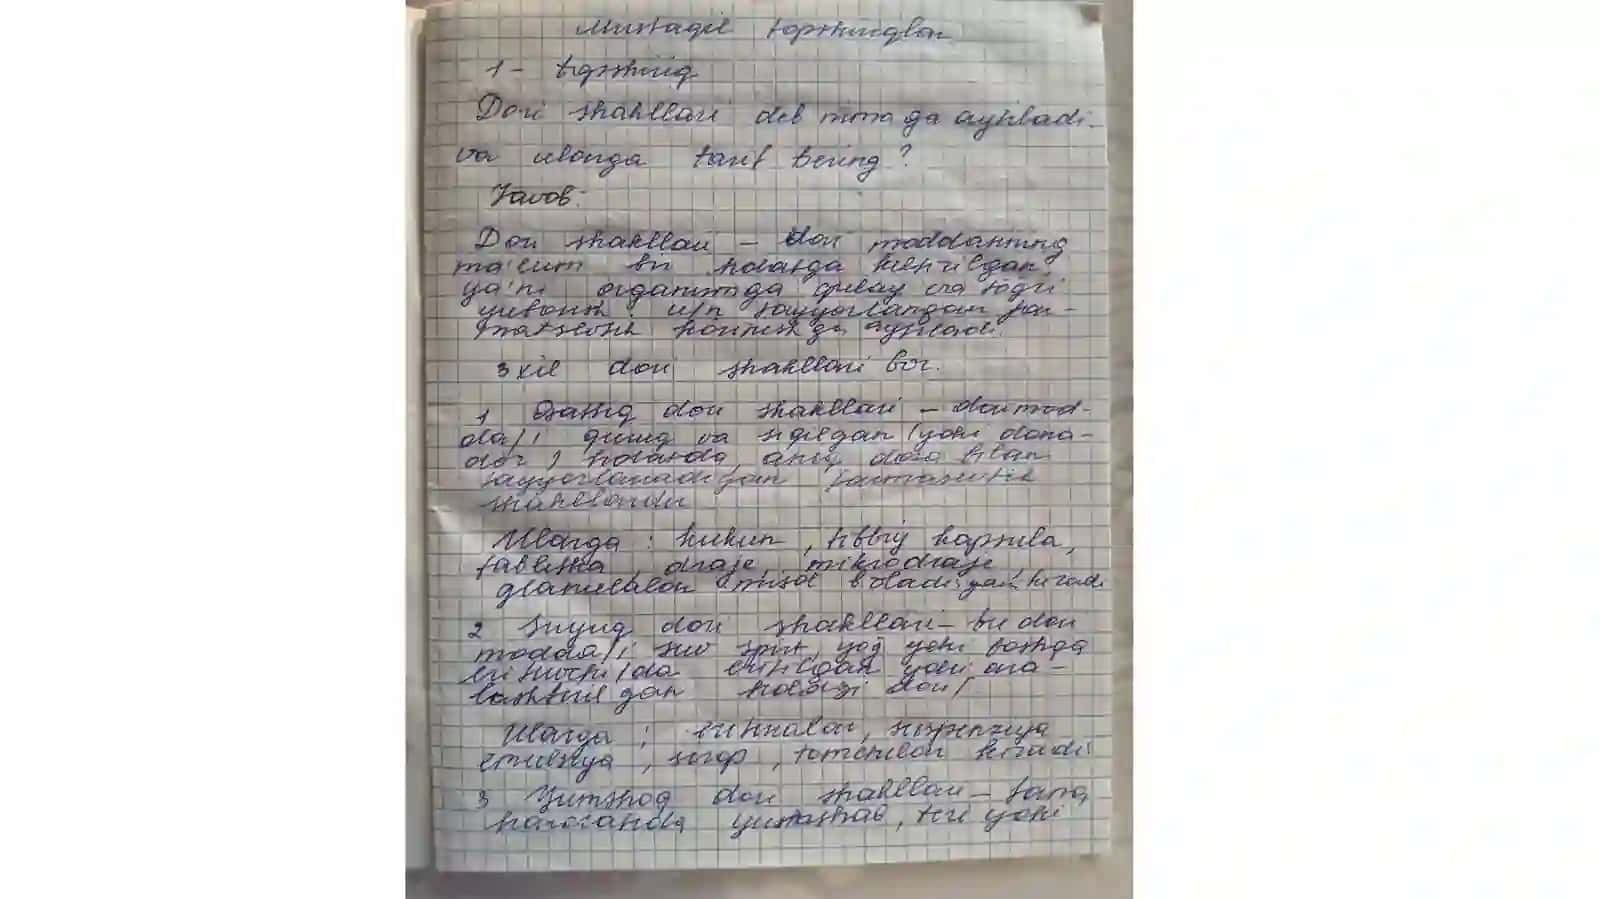 Mustaqil topshiriqlar
1- topshiriq
Dori shakllari deb nimaga aytiladi
va ularga tarif bering?
Javob:
Dori shakllari - dori moddaning
ma'lum bir holatga keltirilgan,
ya'ni organizmga qulay va to'g'ri
yuborish u/n tayyorlangan far-
matsevtik ko'rinishga aytiladi.
3 xil dori shakllari bor.
1 Qattiq dori shakllari - dori mod-
da/i quruq va siqilgan (yoki dona-
dor) holatda, aniq doza bilan
tayyorlanadigan farmasevtik
shakllardir
Ularga: kukun, tibbiy kapsula,
tabletka, draje, mikrodraje,
granulalar misol bo'ladi kiradi
2 Suyuq dori shakllari - bu dori
modda/i suv spirt, yog' yoki boshqa
erituvchi/da eritilgan yoki ara-
lashtirilgan holdagi dori/
Ularga; eritmalar, suspenziya
emulsiya, sirop, tomchilar kiradi
3 Yumshoq dori shakllari - tana
haroratida yumshab, teri yoki